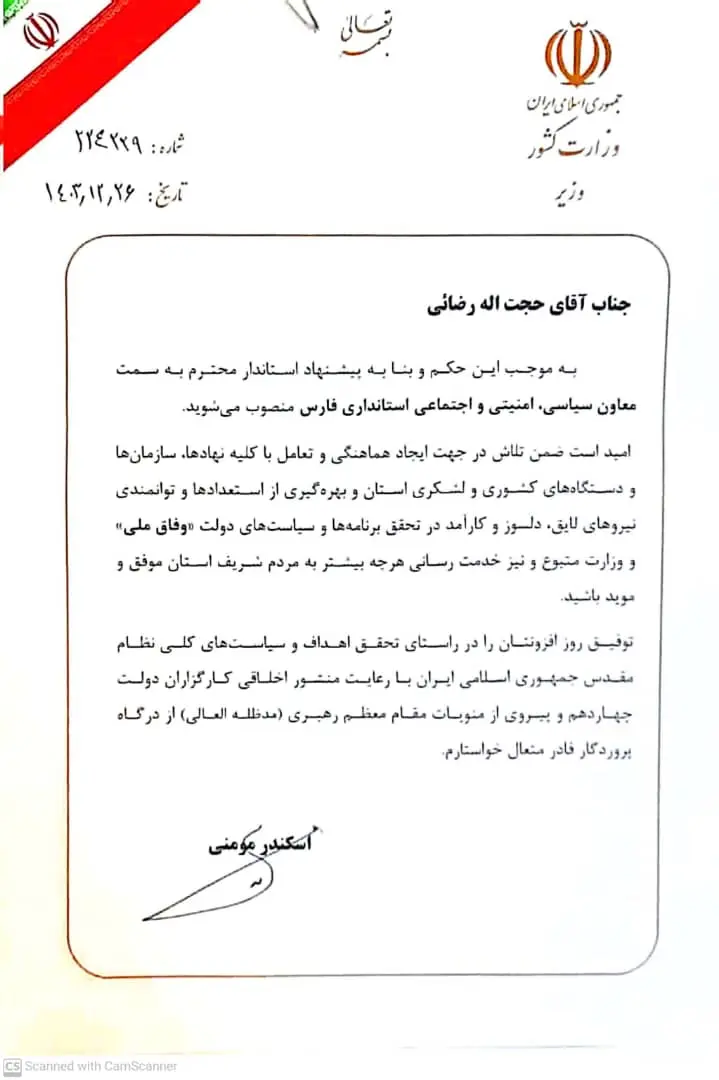 بسمه تعالی
جمهوری اسلامی ایران
وزارت کشور
وزیر
شماره: ۲۲۴۲۲۹
تاریخ: ۱۴۰۳٫۱۲٫۲۶
جناب آقای حجت اله رضائی
به موجب این حکم و بنا به پیشنهاد استاندار محترم به سمت
معاون سیاسی، امنیتی و اجتماعی استانداری فارس منصوب می‌شوید.
امید است ضمن تلاش در جهت ایجاد هماهنگی و تعامل با کلیه نهادها، سازمان‌ها
و دستگاه‌های کشوری و لشکری استان و بهره‌گیری از استعدادها و توانمندی
نیروهای لایق، دلسوز و کارآمد در تحقق برنامه‌ها و سیاست‌های دولت «وفاق ملی»
و وزارت متبوع و نیز خدمت رسانی هرچه بیشتر به مردم شریف استان موفق و
موید باشید.
توفیق روز افزونتان را در راستای تحقق اهداف و سیاست‌های کلی نظام
مقدس جمهوری اسلامی ایران با رعایت منشور اخلاقی کارگزاران دولت
چهاردهم و پیروی از منویات مقام معظم رهبری (مدظله العالی) از درگاه
پروردگار قادر متعال خواستارم.
اسکندر مومنی
CS Scanned with CamScanner